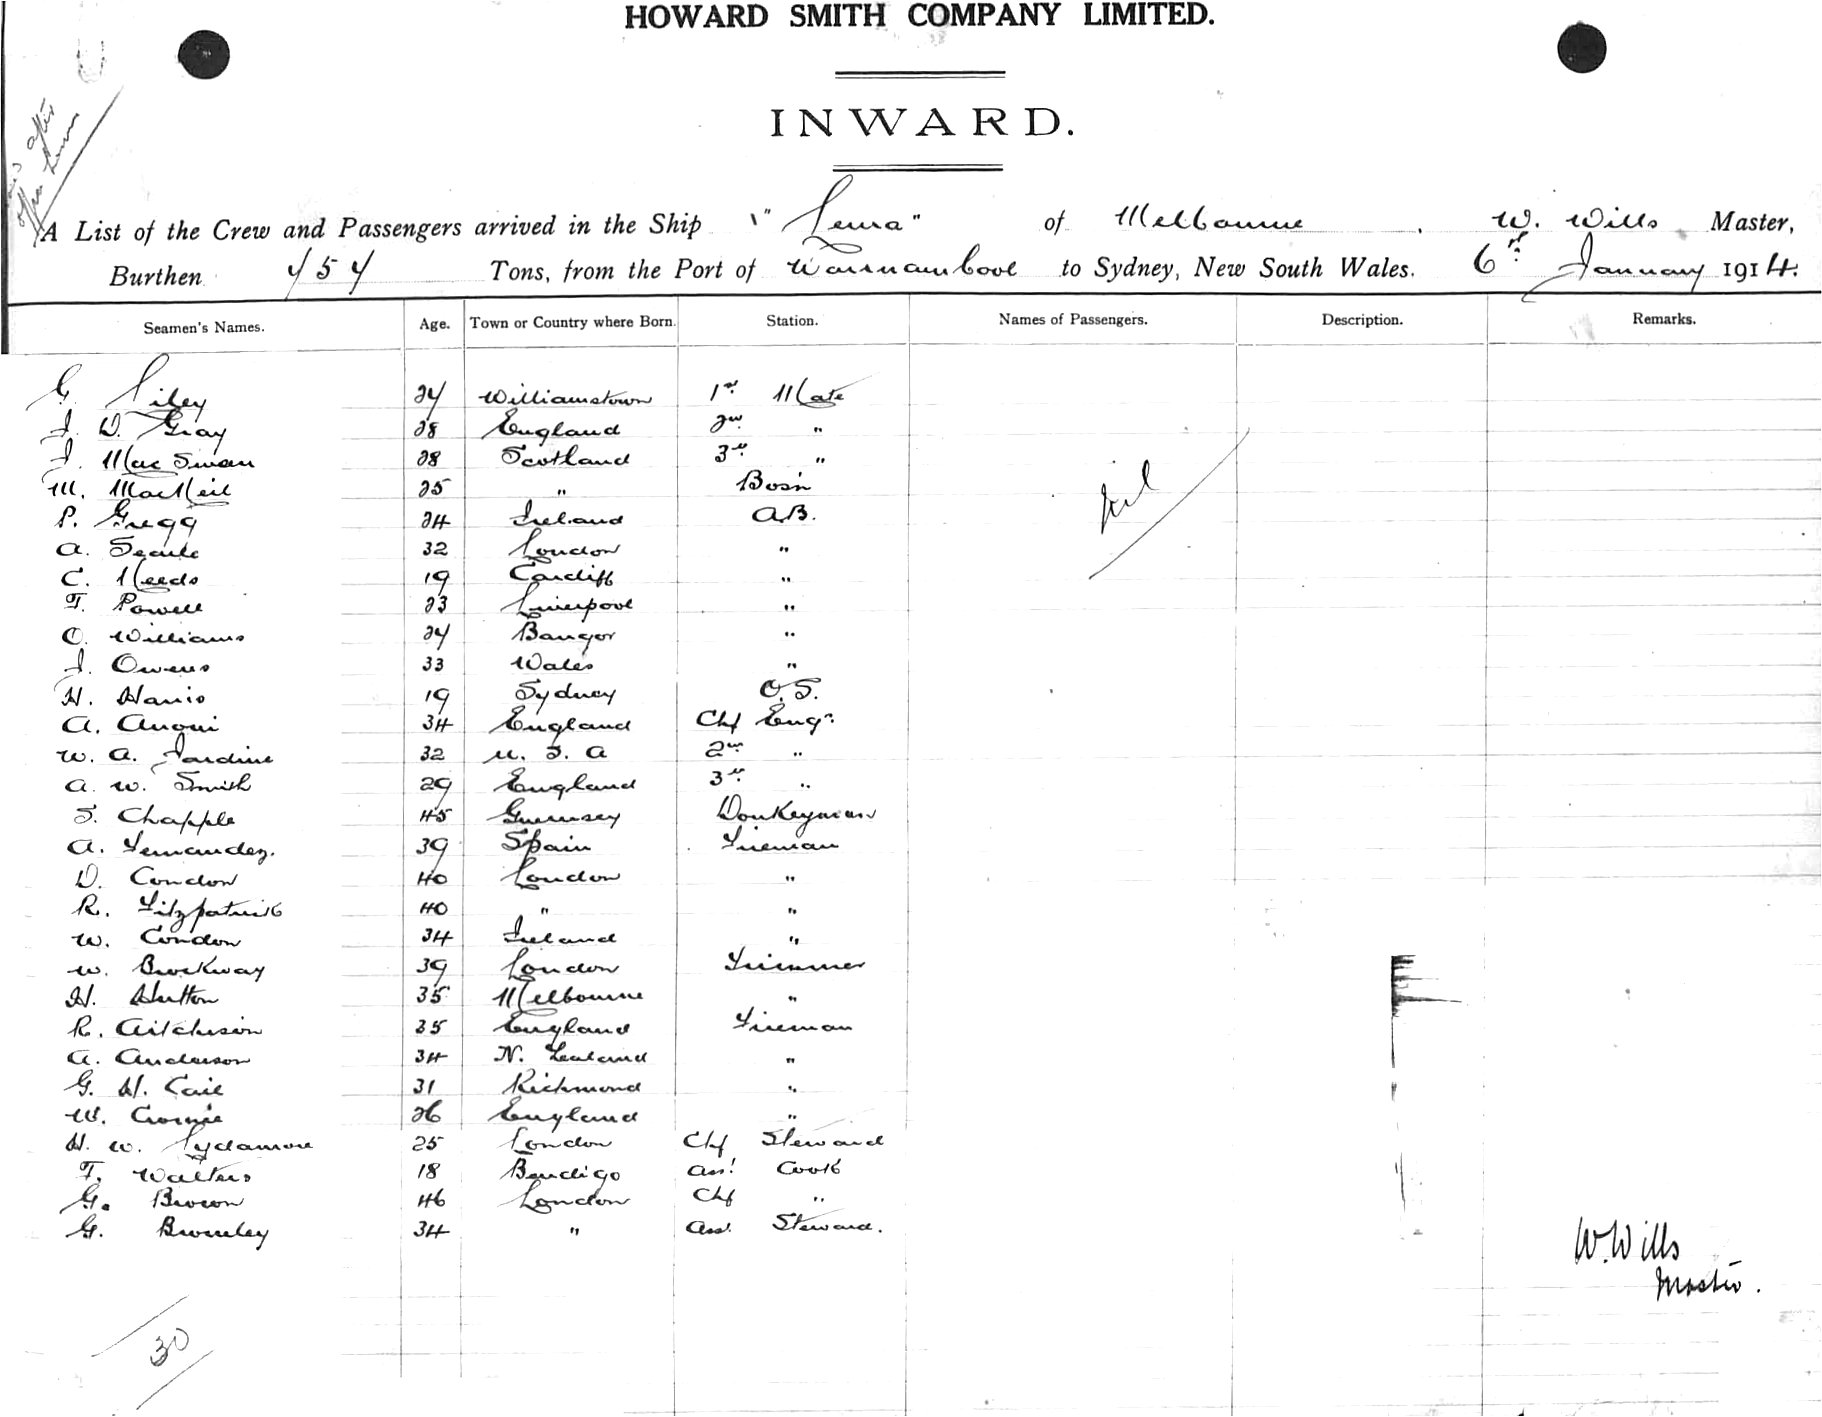 HOWARD SMITH COMPANY LIMITED.
INWARD.
after
A List of the Crew and Passengers arrived in the Ship "Leura" of Melbourne W. Wills Master,
Burthen Tons, from the Port of Warrnambool to Sydney, New South Wales. 6th January 1914.
Seamen's Names. Age. Town or Country where Born. Station. Names of Passengers. Description. Remarks.
G. 27 Williamstown 1st Mate Nil
J. D. Gray 28 England 2nd "
J. MacSwan 28 Scotland 3rd "
M. MacNeil 25 " Bosn
P. Gregg 24 Ireland A.B.
A. Searle 32 London "
C. Needs 19 Cardiff "
F. Powell 23 Liverpool "
O. Williams 27 Bangor "
J. Owens 33 Wales "
H. Harris 19 Sydney O.S.
A. 34 England Chf Engr.
W. A. Jardine 32 U. S. A 2nd "
A. W. Smith 29 England 3rd "
S. Chapple 45 Guernsey Donkeyman
A. Fernandez. 39 Spain Fireman
D. Condon 40 London "
R. Fitzpatrick 40 " "
W. Condon 34 Ireland "
W. Brockway 39 London Trimmer
H. Hutton 35 Melbourne "
R. Aitchison 35 England Fireman
A. Anderson 34 N. Zealand "
G. H. Cail 31 Richmond "
W. 26 England "
H. W. Lydamore 25 London Chf Steward
F. Walters 18 Bendigo Ass. Cook
G. Brown 46 London Chf "
G. Bromley 34 " Ass. Steward.
W. Wills
Master.
30